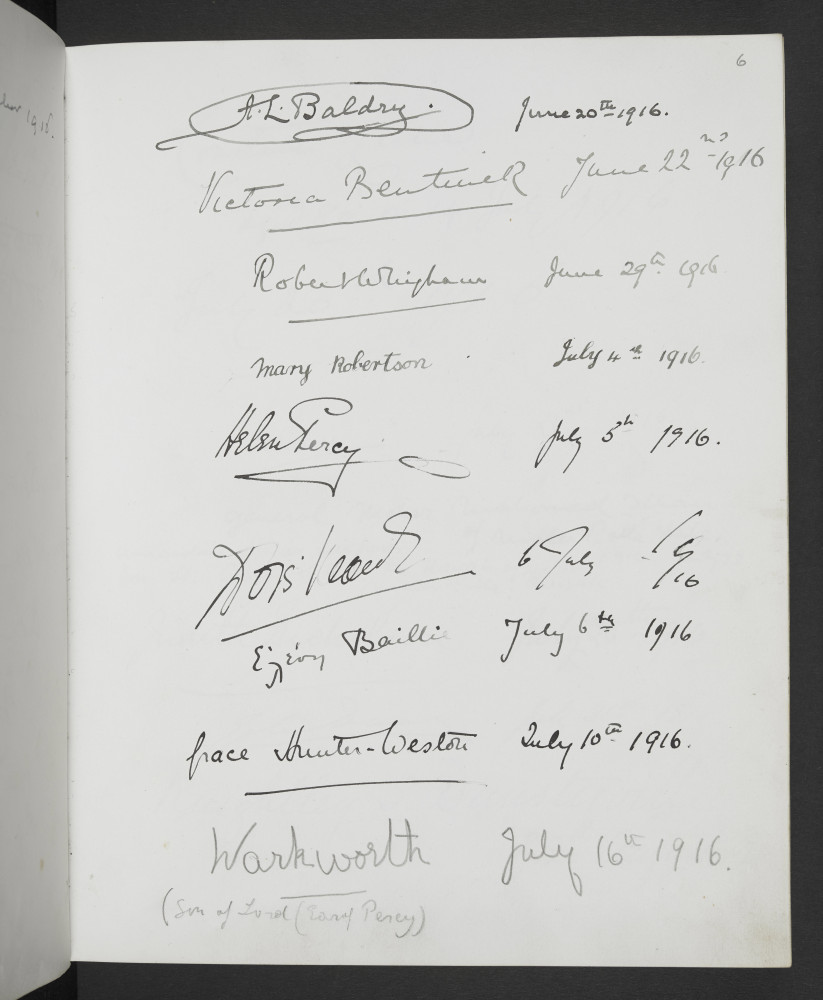 6
A. L. Baldry. June 20th 1916.
Victoria Bentinck June 22nd 1916
Robert Whigham June 29th 1916
Mary Robertson. July 4th 1916.
Helen Percy July 5th 1916.
Doris 6 July 19/16
Ἑλένη Baillie July 6th 1916
Grace Hunter-Weston July 10th 1916.
Warkworth July 16th 1916.
(Son of Lord (Earl Percy)
1916.